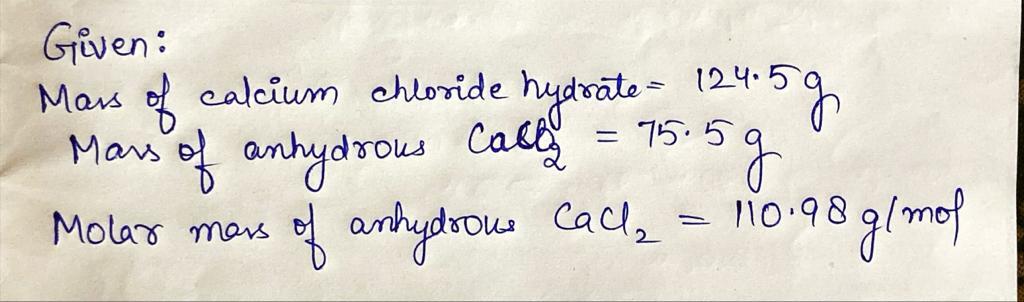 Given:
Mass of calcium chloride hydrate = 124.5 g
Mass of anhydrous CaCl₂ = 75.5 g
Molar mass of anhydrous CaCl₂ = 110.98 g/mol